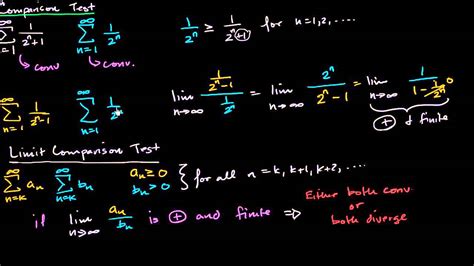 Comparison Test
∞ ∑ n=1 1/(2ⁿ+1) ∞ ∑ n=1 1/2ⁿ 1/2ⁿ ≥ 1/(2ⁿ+1) for n=1,2,....
↳ conv ↳ conv.
∞ ∑ n=1 1/(2ⁿ-1) ∞ ∑ n=1 1/2ⁿ lim n→∞ (1/(2ⁿ-1))/(1/2ⁿ) = lim n→∞ 2ⁿ/(2ⁿ-1) = lim n→∞ 1/(1-1/2ⁿ) 0
⊕ & finite
Limit Comparison Test
∞ ∑ n=k aₙ ∞ ∑ n=k bₙ aₙ ≥ 0 bₙ > 0 } for all n = k, k+1, k+2, ....
if lim n→∞ aₙ/bₙ is ⊕ and finite ⇒ Either both conv. or both diverge